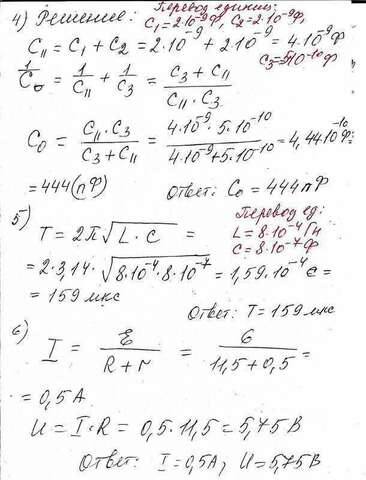 4) Решение: Перевод единиц:
C₁=2·10⁻⁹Ф, C₂=2·10⁻⁹Ф,
C₁₁ = C₁ + C₂ = 2·10⁻⁹ + 2·10⁻⁹ = 4·10⁻⁹ Ф
C₃=5·10⁻¹⁰Ф
1/C₀ = 1/C₁₁ + 1/C₃ = (C₃ + C₁₁)/(C₁₁·C₃)
C₀ = (C₁₁·C₃)/(C₃+C₁₁) = (4·10⁻⁹·5·10⁻¹⁰)/(4·10⁻⁹+5·10⁻¹⁰) = 4,44·10⁻¹⁰Ф=
= 444(пФ) Ответ: C₀ = 444пФ
5) Перевод ед:
T = 2π√(L·C) = L = 8·10⁻⁴ Гн
C = 8·10⁻⁷ Ф
= 2·3,14·√(8·10⁻⁴·8·10⁻⁷) = 1,59·10⁻⁴ с =
= 159 мкс
Ответ: T = 159 мкс
6)
I = ℰ/(R+r) = 6/(11,5+0,5) =
= 0,5А
U = I·R = 0,5·11,5 = 5,75В
Ответ: I=0,5А, U=5,75В